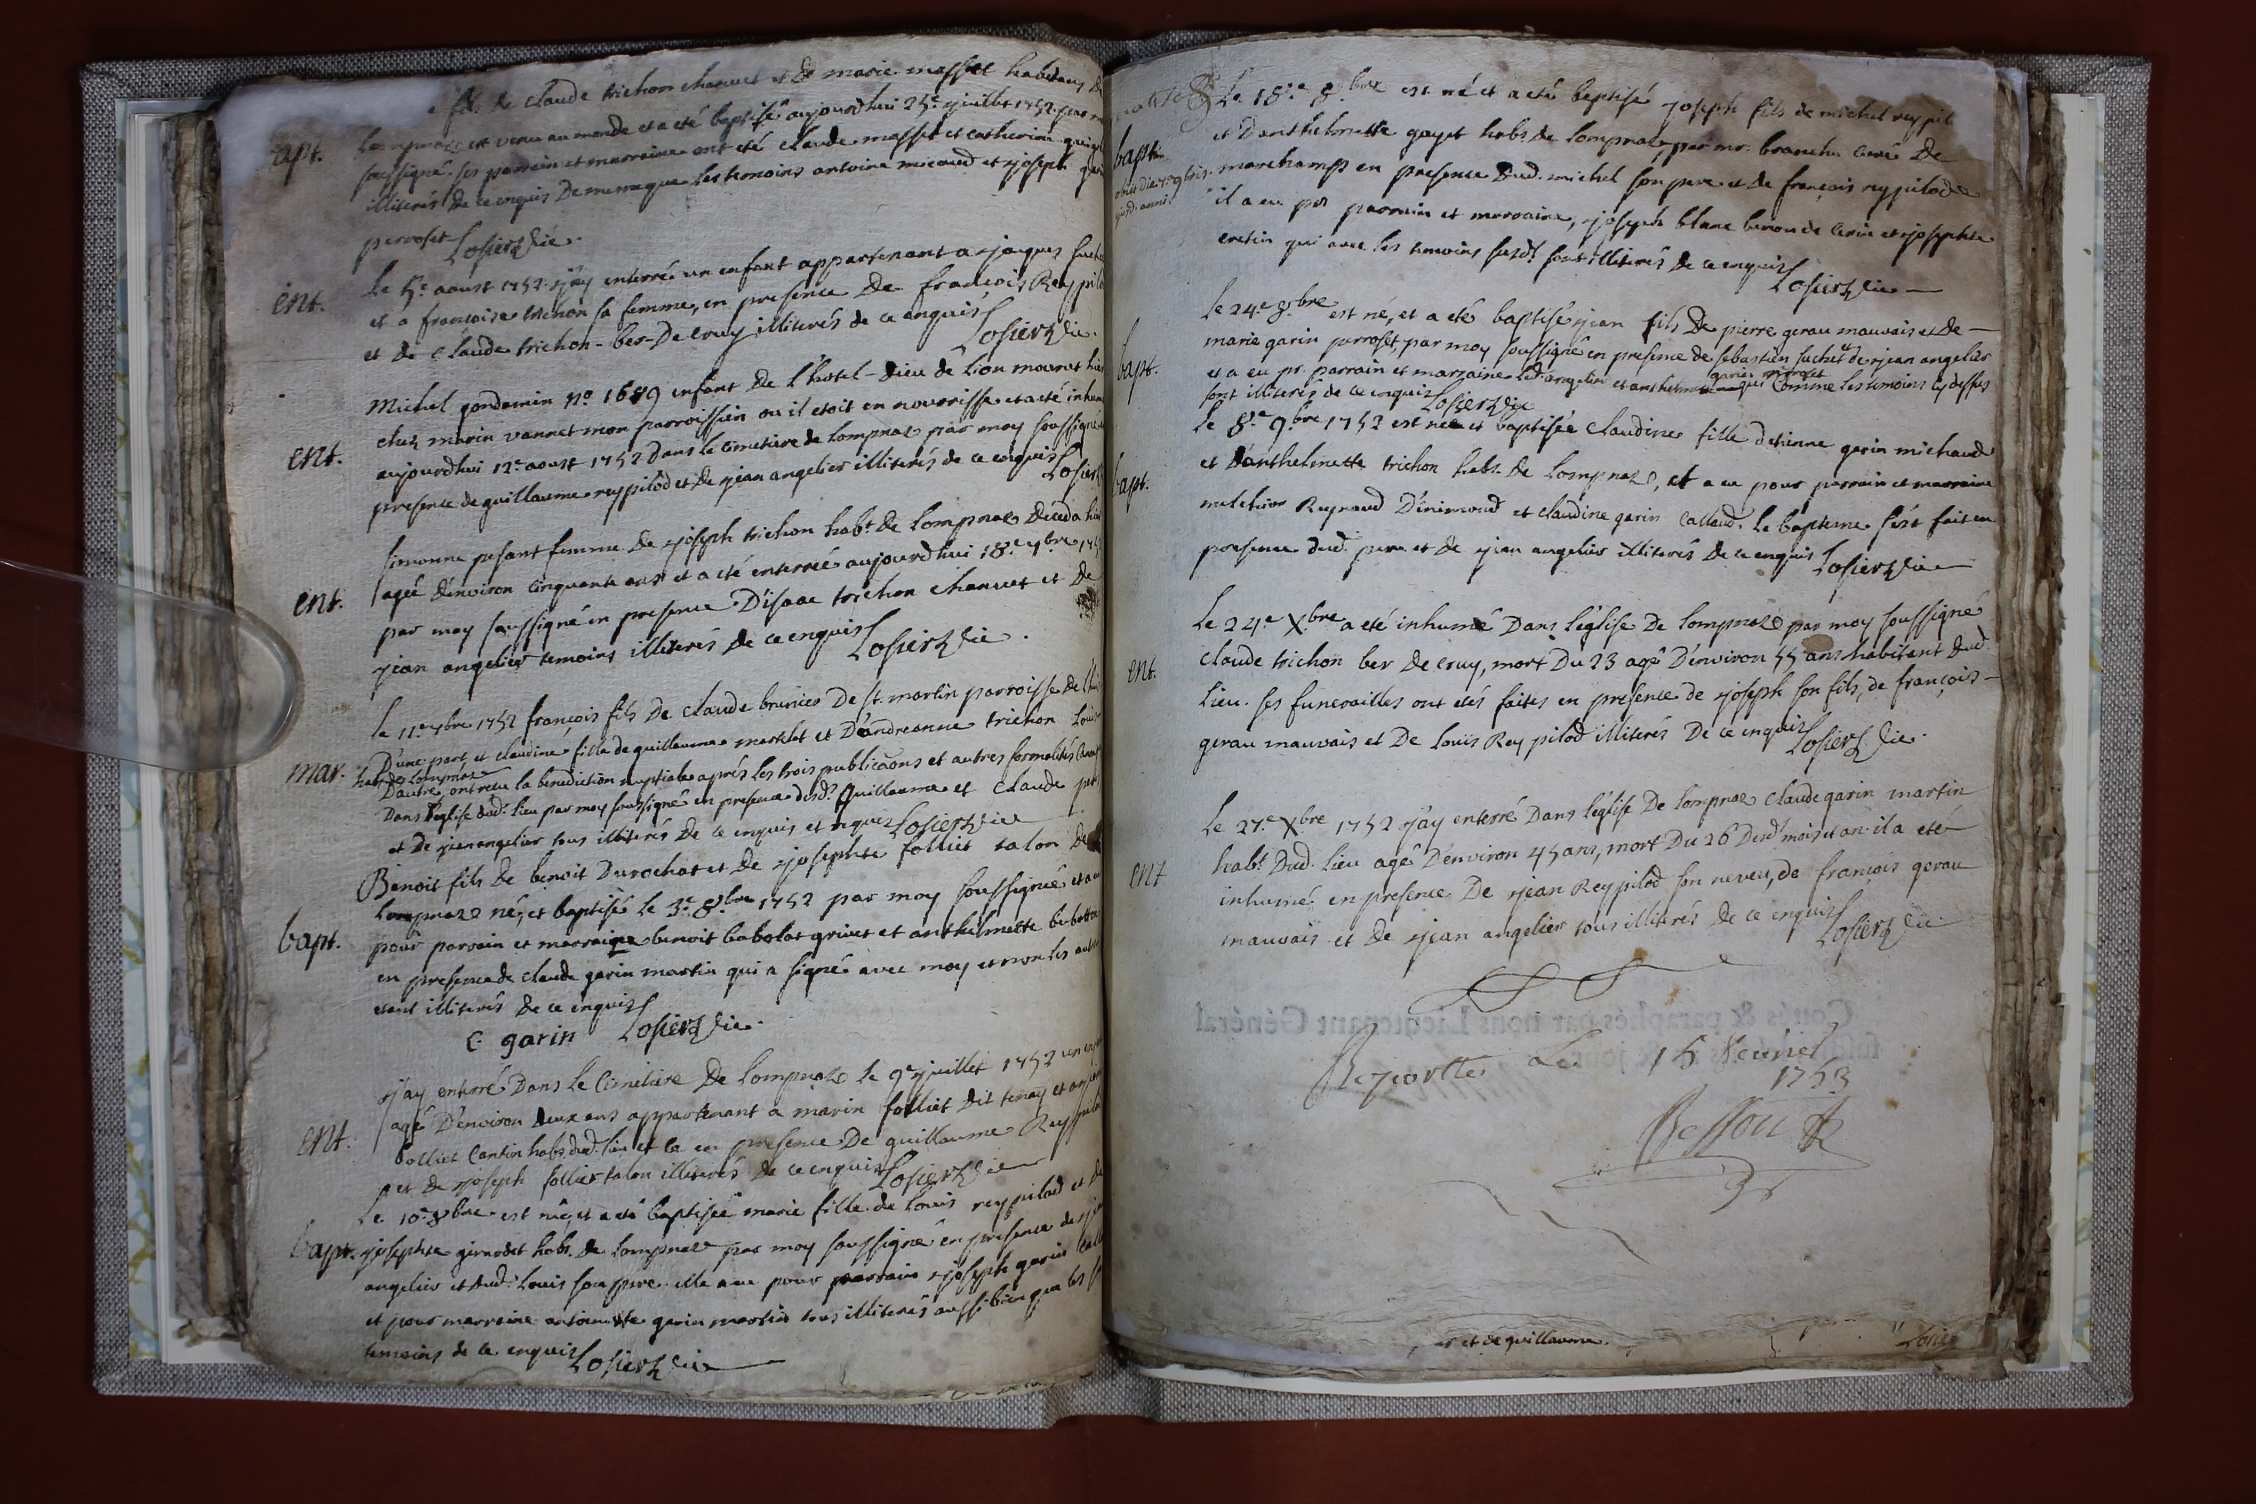 fils de claude trichon chanuet et de marie masset habitans de
bapt. Lompnaz est venu au monde et a eté baptisé aujourdhui 25e juillet 1752 par moy
soussigné. ses parrain et marraine ont eté claude masset et catherine
illiterés de ce enquis De mesme que les temoins antoine micoud et joseph
perroset Losier vic.
ent. Le 5e aoust 1752 j'ay enterré un enfant appartenant a jaques
et a francoise trichon sa femme, en presence De francois Rey pilod
et de Claude trichon-ber-De cruy illiterés de ce enquis Losier vic.
ent. Michel gondamin no 1689 enfant De l'hotel-Dieu de Lion mourut hier
chez marin vannet mon parroissien ou il etoit en nourrisse et a eté inhumé
aujourdhui 12e aoust 1752 Dans le cimetiere de Lompnaz par moy soussigné
presence de guillaume rey pilod et de jean angelier illiterés de ce enquis Losier
ent. Simonne pesant femme De joseph trichon habt. de Lompnaz deceda hier
ageé d'environ cinquante ans et a eté enterreé aujourdhui 18e 7bre 1752
par moy soussigné en presence D'isaac trichon chanuet et de
jean angelier temoins illiterés de ce enquis Losier vic.
mar. Le 11e 7bre 1752 françois fils De claude brunier De st. martin parroisse de
D'une part, et claudine fille de guillaume martelet et D'andreanne trichon
habt. de Lompnaz
D'autre, ont reçu la benediction nuptiale aprés les trois publicaons et autres formalités
Dans l'eglise dud. lieu par moy soussigné en presence desd. guillaume et claude
et De jean angelier tous illiterés De ce enquis et requis Losier vic
Benoit fils De benoit Durochat et De josephte folliet talon De
Lompnaz né, et baptisé le 3e 8bre 1752 par moy soussigné et a eu
bapt. pour parrain et marraine benoit babolat grivet et anthelmette
en presence de claude garin martin qui a signé avec moy et non les autres
etant illiterés De ce enquis
C. garin Losier vic.
j'ay enterré Dans le Cimetiere De Lompnaz le 9e juillet 1752 un enfant
ent. agé D'environ deux ans appartenant a marin folliet dit tenay et
folliet Cantin habs dud. lieu et ce en presence De guillaume Rey pilod
et de joseph folliet talon illiterés de ce enquis Losier vic
Le 10e 8bre est née, et a eté baptisée marie fille de Louis rey pilod et de
bapt. josephte girardet habs. de Lompnaz par moy soussigné en presence de jean
angelier et dud. Louis son pere. elle a eu pour parrain joseph garin
et pour marraine antoinette garin martin tous illiterés aussi bien que les
temoins de ce enquis Losier vic
Le 18e 8bre est né et a eté baptisé joseph fils de michel rey pil
bapt. et D'anthelmette gayet habs. de Lompnaz, par mr. branche curé De
marchamp en presence dud. michel son pere et de françois rey pilod
il a eu pr parrain et marraine, joseph blanc de Cerin et josephte
cretin qui avec les temoins susds. sont illiterés de ce enquis
Losier vic
Le 24e 8bre est né, et a eté baptisé jean fils De pierre gerau mauvais et de
marie garin perroset, par moy soussigné en presence de sebastien suchet et de jean angelier
bapt. et a eu pr. parrain et marraine led. angelier et anthelmette garin perroset qui Comme les temoins cy dessus
sont illiterés de ce enquis Losier vic
Le 8e 9bre 1752 est née et baptisée claudine fille d'etienne garin michaud
bapt. et D'anthelmette trichon habs. de Lompnaz, et a eu pour parrain et marraine
melchior Reynaud D'inimond et claudine garin Callaud. Le bapteme s'est fait en
presence dud. pere et de jean angelier illiterés De ce enquis Losier vic
Le 24e Xbre a eté inhumé Dans l'eglise De Lompnaz par moy soussigné
ent. claude trichon ber de cruy, mort Du 23 agé D'environ 55 ans habitant dud.
lieu. ses funerailles ont etés faites en presence de joseph son fils, de françois
gerau mauvais et De Louis Rey pilod illiterés De ce enquis Losier vic.
Le 27e Xbre 1752 j'ay enterré Dans l'eglise De Lompnaz claude garin martin
ent habt. Dud. lieu agé D'environ 45 ans, mort Du 26 Desd. mois et an. il a eté
inhumé en presence De jean Rey pilod son neveu, de françois gerau
mauvais et De jean angelier tous illiterés de ce enquis Losier vic.
Cottés & paraphés par nous Lieutenant Général
Raporté Le 15 fevrier
1753
Besson
et de guillaume
Losier